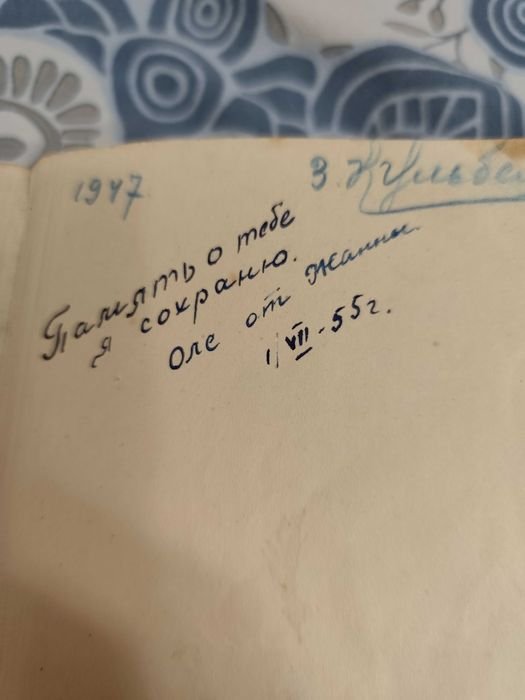 1947
З.
Память о тебе
я сохраню.
Оле от Жанны.
1/VII-55г.